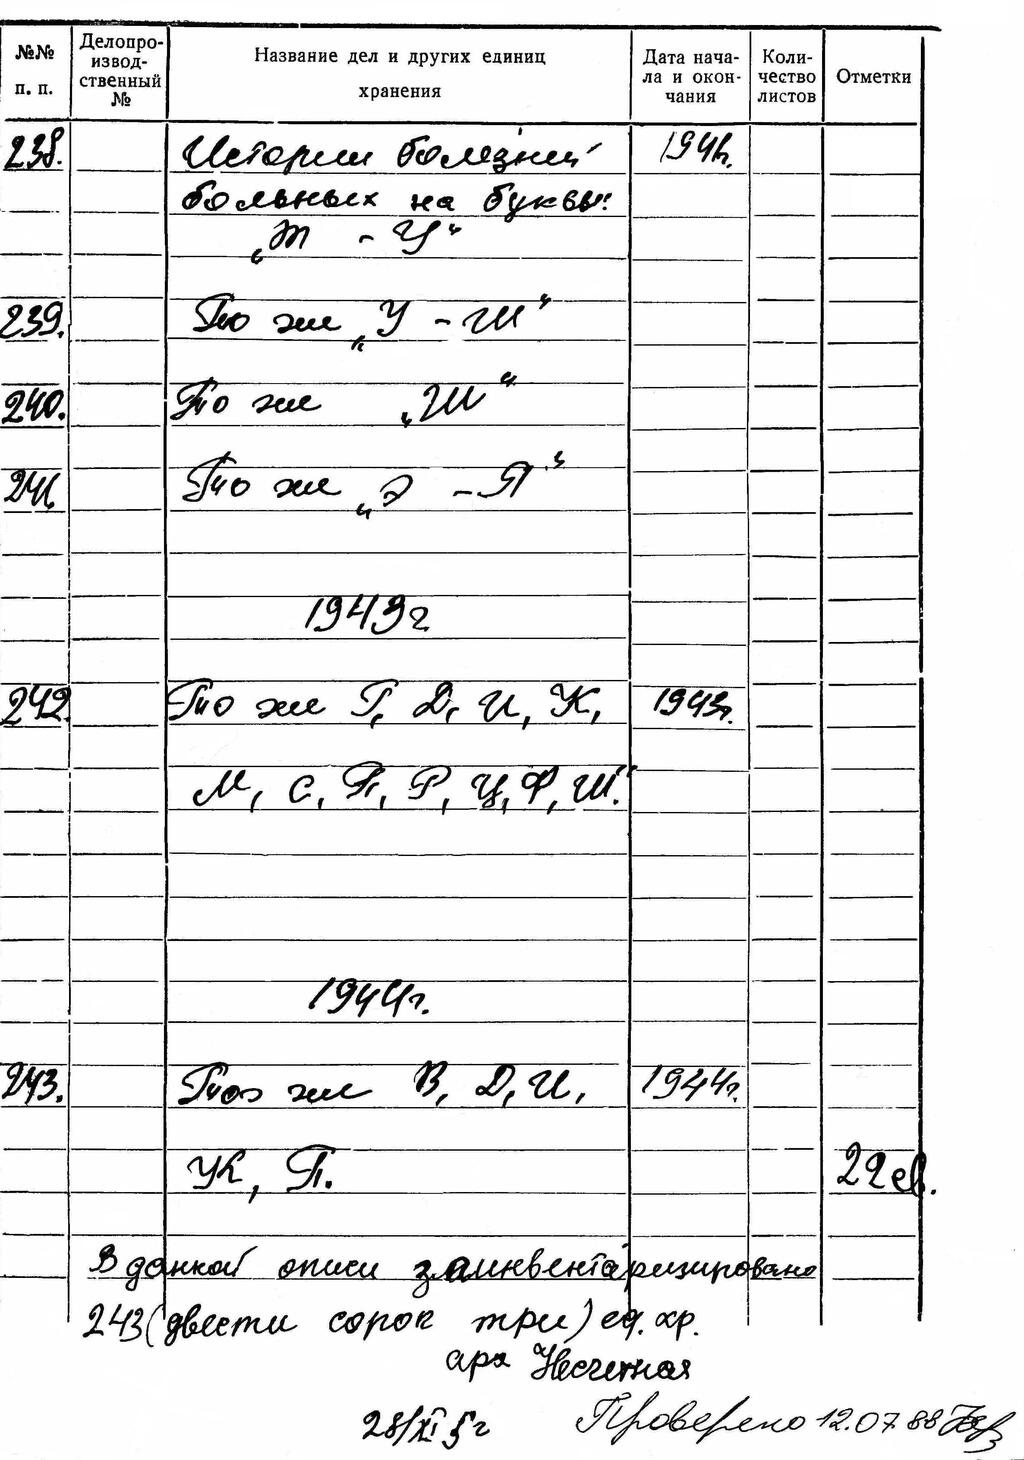 №№ п. п.
Делопро-
извод-
ственный
№
Название дел и других единиц
хранения
Дата нача-
ла и окон-
чания
Коли-
чество
листов
Отметки
238. Истории болезней
больных на буквы:
239. То же „У - Ш“
240. То же „Ш“
241. То же „Э - Я“
1943г
242. То же Г, Д, И, К, 1943г.
М, С, П, Р, Ц, Ф, Ш.“
1944г.
243. То же В, Д, И, 1944г.
П.
В данной описи заинвентаризировано
243 (двести сорок три) ед. хр.
арх
Проверено 12.07.88